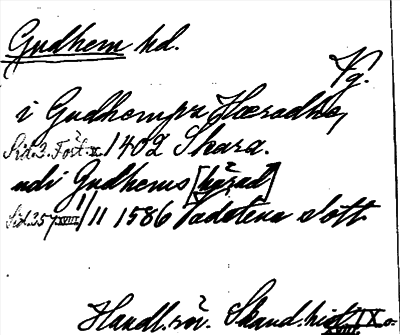 Gudhem hd.
Vg.
i Gudhempu Hæradhe
Sid. 2. Fört. X. 1402 Skara.
udi Gudhems [härad]
Sid. 357 XVIII 1/11 1586 Vadstena slott
Handl. rör. Skand. hist. IX o.
XVIII.